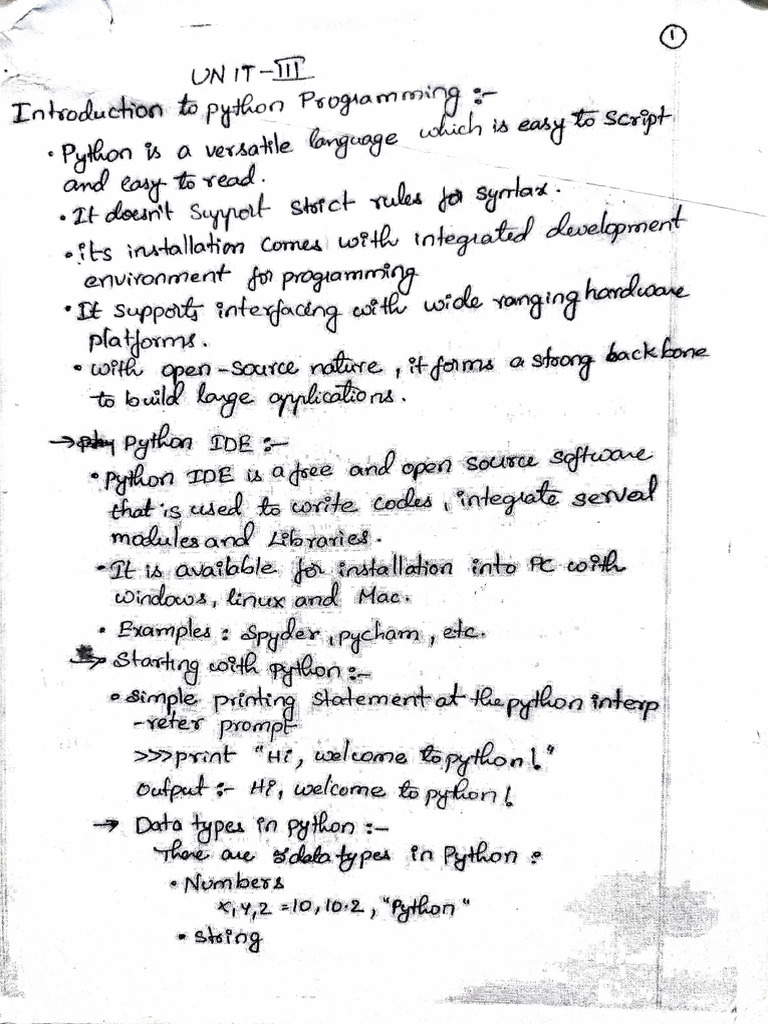 1
UNIT-III
Introduction to python Programming :-
• Python is a versatile language which is easy to script
and easy to read.
• It doesn't support strict rules for syntax.
• its installation comes with integrated development
environment for programming
• It supports interfacing with wide ranging hardware
platforms.
• with open-source nature, it forms a strong backbone
to build large applications.
→ Python IDE :-
• Python IDE is a free and open source software
that is used to write codes, integrate serveal
modules and Libraries.
• It is available for installation into PC with
windows, linux and Mac.
• Examples : Spyder, pycham, etc.
→ Starting with python :-
• simple printing statement at the python interp
-reter prompt
>>>print "Hi, welcome to python!"
Output :- Hi, welcome to python!
→ Data types in python :-
There are 5 data types in Python :
• Numbers
x,y,z =10,10.2,"Python"
• string